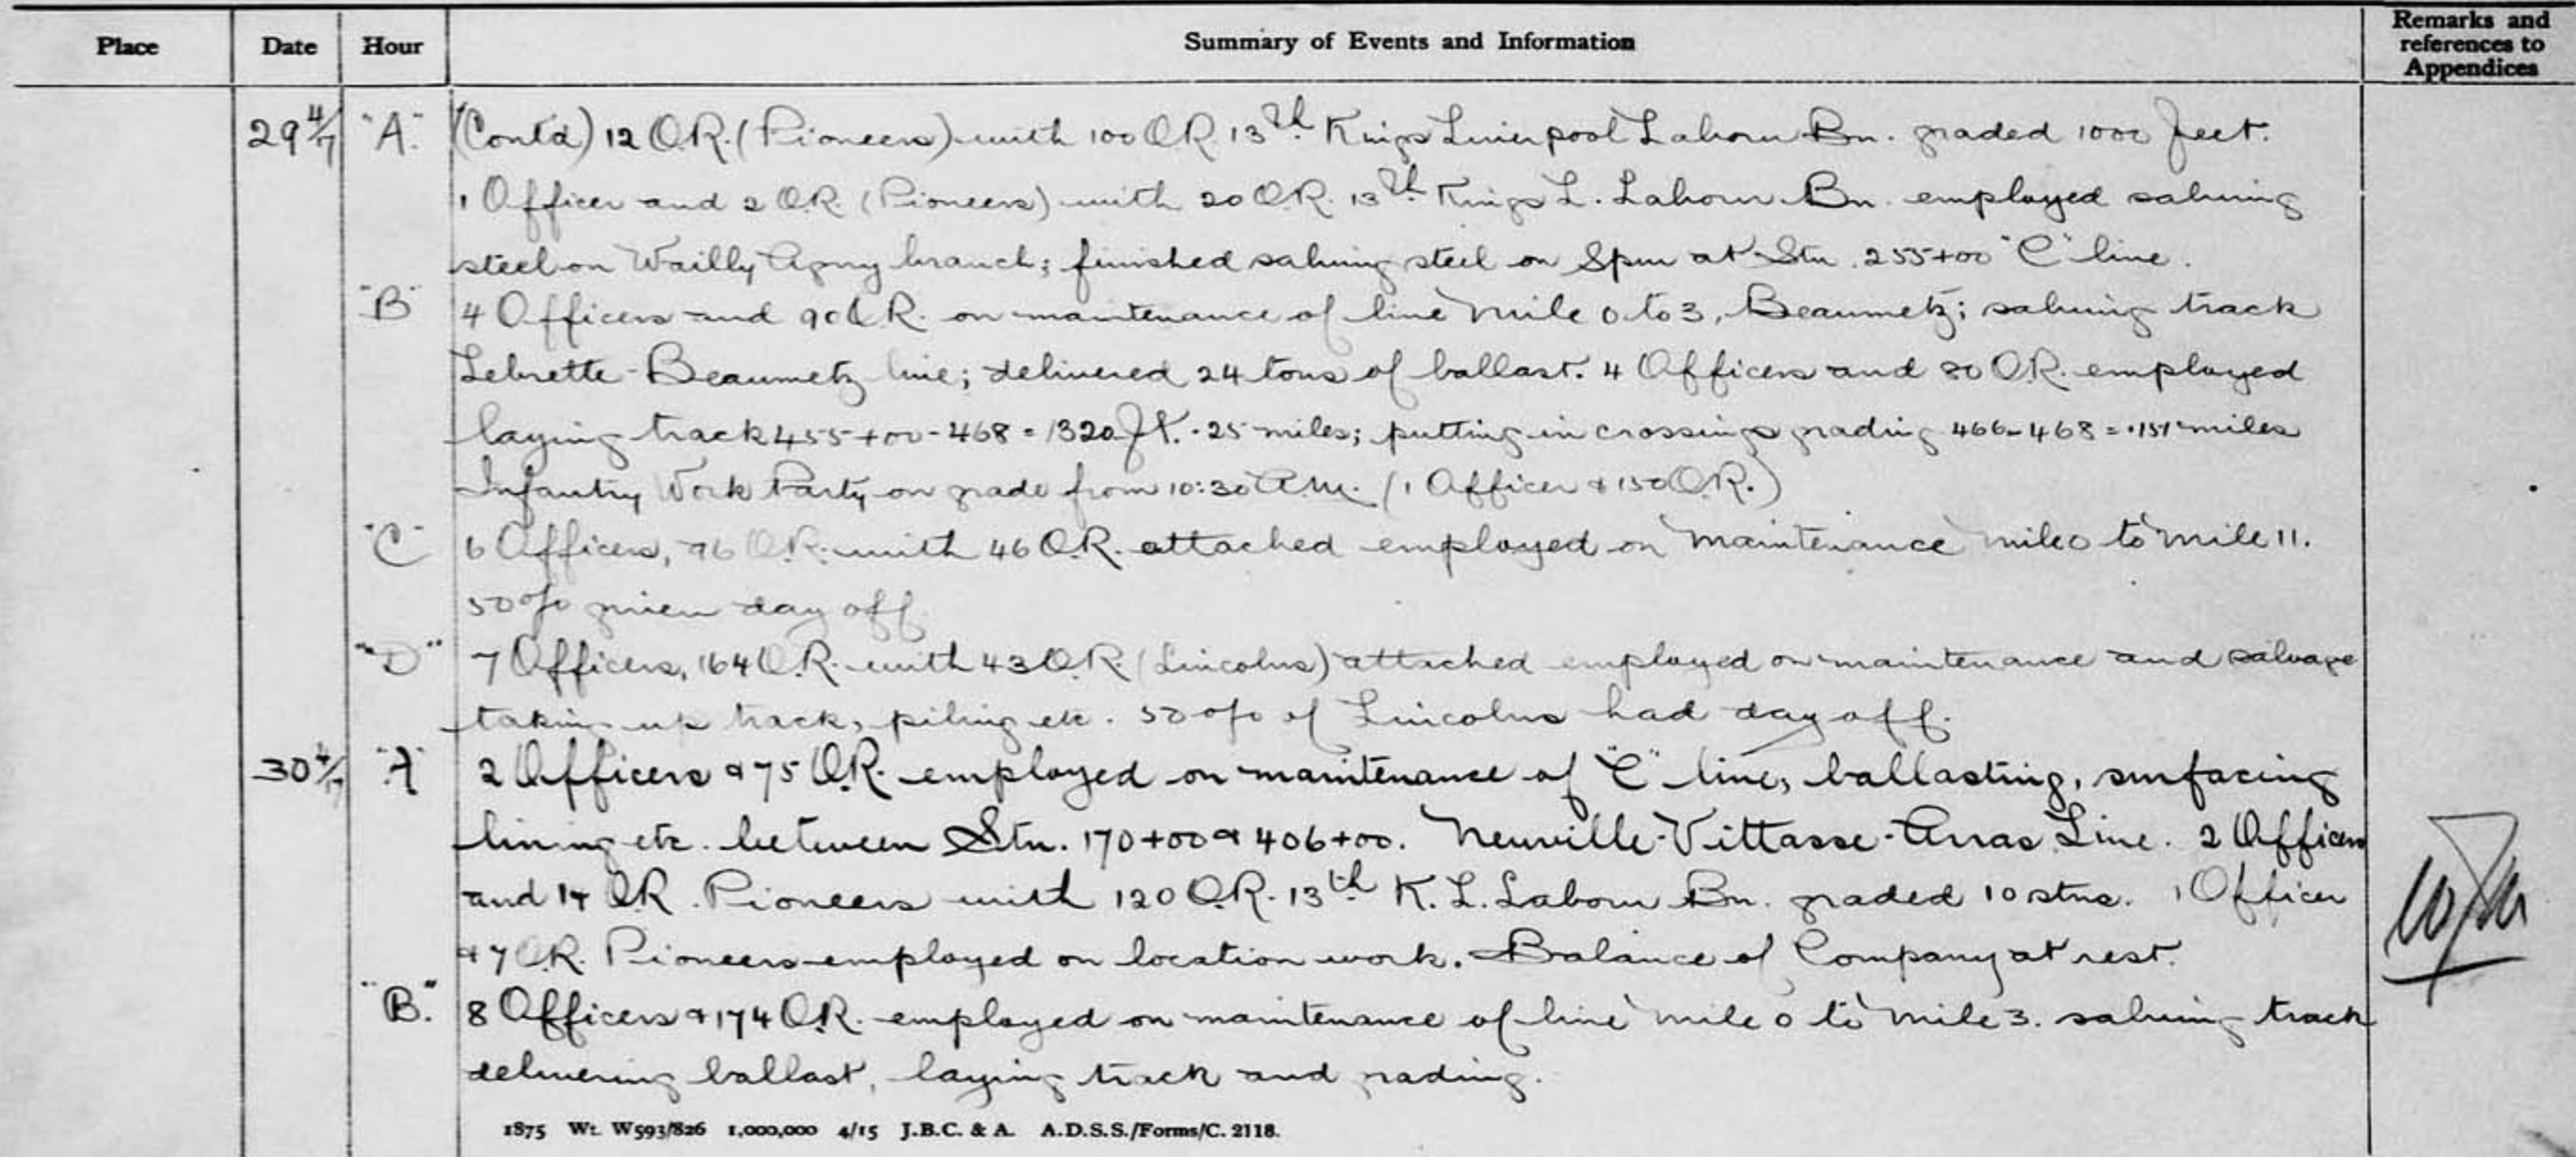 Place Date Hour Summary of Events and Information Remarks and references to Appendices
29 4/17 "A." (Contd) 12 O.R. (Pioneers) with 100 O.R. 13th Kings Liverpool Labour Bn. graded 1000 feet.
1 Officer and 2 O.R. (Pioneers) with 20 O.R. 13th Kings L. Labour Bn. employed salving
steel on Wailly Agny branch; finished salving steel on Spur at Stn. 255+00 "C" line.
"B" 4 Officers and 90 O.R. on maintenance of line mile 0 to 3, Beaumetz; salving track
Beaumetz line; delivered 24 tons of ballast. 4 Officers and 80 O.R. employed
laying track 455+00-468 = 1320 ft. .25 miles; putting in crossings grading 466-468 = miles
Infantry Work Party on grade from 10:30 A.M. (1 Officer & 150 O.R.)
"C" 6 Officers, 96 O.R. with 46 O.R. attached employed on maintenance mile 0 to mile 11.
50% given day off.
"D" 7 Officers, 164 O.R. with 43 O.R. (Lincolns) attached employed on maintenance and salvage
taking up track, piling etc. 50% of Lincolns had day off.
30 4/17 "A" 2 Officers & 75 O.R. employed on maintenance of "C" line, ballasting, surfacing
lining etc. between Stn. 170+00 & 406+00. Neuville-Vittasse-Arras Line. 2 Officers
and 14 O.R. Pioneers with 120 O.R. 13th K. L. Labour Bn. graded 10 stns. 1 Officer
& 7 O.R. Pioneers employed on location work. Balance of Company at rest.
"B." 8 Officers & 174 O.R. employed on maintenance of line mile 0 to mile 3. salving track
delivering ballast, laying track and grading.
1875 Wt. W593/826 1,000,000 4/15 J.B.C. & A. A.D.S.S./Forms/C. 2118.